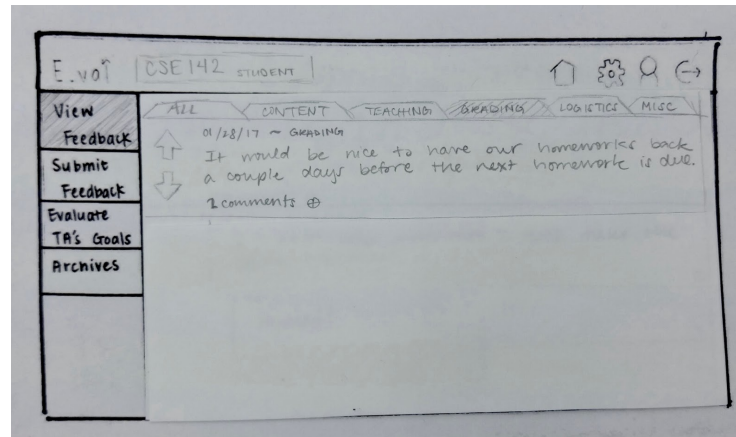 E.val CSE 142 STUDENT
View
Feedback
Submit
Feedback
Evaluate
TA's Goals
Archives
ALL CONTENT TEACHING GRADING LOGISTICS MISC
01/28/17 ~ GRADING
It would be nice to have our homeworks back
a couple days before the next homework is due.
2 comments